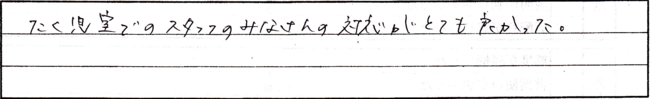 たく児室でのスタッフのみなさんの対応がとても良かった。